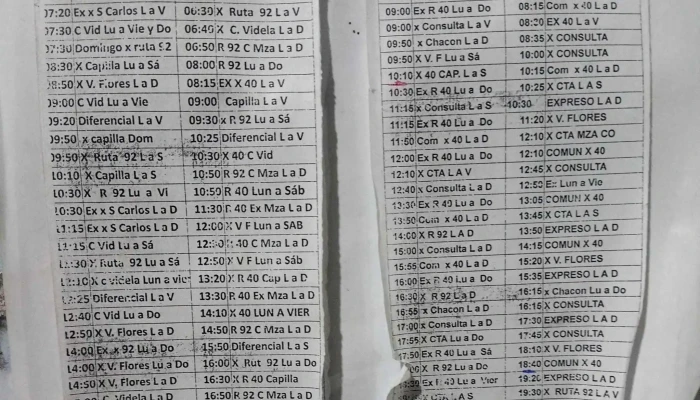 07:20 Ex x S Carlos L a V
07:30 C Vid Lu a Vie y Do
07:30 Domingo x ruta 92
08:30 X Capilla Lu a Sá
08:50 X V. Flores L a D
09:00 C Vid Lu a Vie
09:20 Diferencial L a V
09:50 x capilla Dom
09:50 X Ruta 92 L a S
10:10 X Capilla L a S
10:30 X R 92 Lu a Vi
10:30 Ex x S Carlos L a D
11:15 Ex x S Carlos L a D
11:15 C Vid Lu a Sá
X Ruta 92 Lu a Sá
X c videla Lun a vier
12:25 Diferencial L a V
12:40 C Vid Lu a Do
12:50 X V. Flores L a D
14:00 Ex x 92 Lu a Do
14:00 X V. Flores Lu a Do
14:50 X V. Flores L a D
06:30 X Ruta 92 L a V
06:45 X C. Videla L a D
06:50 R 92 C Mza L a D
08:00 R 92 Lu a Do
08:15 EX X 40 L a V
09:00 Capilla L a V
09:30 x R 92 Lu a Sá
10:25 Diferencial L a V
10:30 X 40 C Vid
10:50 R 92 C Mza L a D
10:50 R 40 Lun a Sáb
11:30 R 40 Ex Mza L a D
12:00 X V F Lun a SAB
40 C Mza L a D
12:50 X V F Lun a Sáb
13:20 R 40 Cap L a D
13:30 R 40 Ex Mza L a D
14:10 X 40 LUN A VIER
14:50 R 92 C Mza L a D
15:50 Diferencial L a S
16:00 X Rut 92 Lu a Do
16:30 X R 40 Capilla
16:50 R 92 C Mza L a D
09:00 Ex R 40 Lu a Do
09:00 x Consulta L a V
09:50 x Chacon L a D
09:50 X V. F Lu a Sá
10:10 X 40 CAP. L a S
10:30 Ex R 40 Lu a Do
11:15 x Consulta L a S
11:15 Ex R 40 Lu a Do
11:50 Com x 40 L a D
12:00 Ex R 40 Lu a Do
12:10 X CTA L A V
12:40 x Consulta L a D
13:30 Ex R 40 Lu a Do
13:50 Com x 40 L a D
14:00 X R 92 L A D
15:00 x Consulta L a D
15:55 Com x 40 L a D
16:00 Ex R 40 Lu a Do
16:30 X R 92 L a D
16:55 x Chacon L a D
17:00 x Consulta L a D
17:55 X CTA Lu a Do
17:50 Ex R 40 Lu a Sá
X R 92 Lu a Do
Ex R 40 Lu a Vier
X CTA L A S
08:15 Com x 40 L a D
08:20 EX 40 L a V
08:35 X CONSULTA
10:00 X CONSULTA
10:15 Com x 40 L a D
10:25 X CTA L A S
10:30 EXPRESO L A D
11:20 X V. FLORES
12:10 X CTA MZA CO
12:10 COMUN X 40
12:45 X CONSULTA
12:50 Ex Lun a Vie
13:05 COMUN X 40
13:45 X CTA L A S
13:50 EXPRESO L A D
14:15 COMUN X 40
15:20 X V. FLORES
15:35 EXPRESO L A D
16:15 x Chacon Lu a Do
16:15 X CONSULTA
17:30 EXPRESO L A D
17:45 X CONSULTA
18:10 X V. FLORES
18:40 COMUN X 40
19:20 EXPRESO L A D
19:30 X RUTA 92 L A V